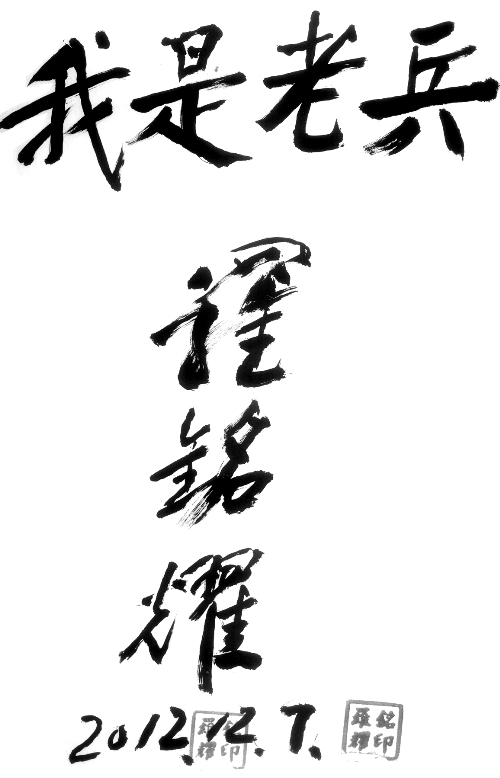 我是老兵
羅
銘
耀
2012.12.7.
羅銘
耀印
羅銘
耀印